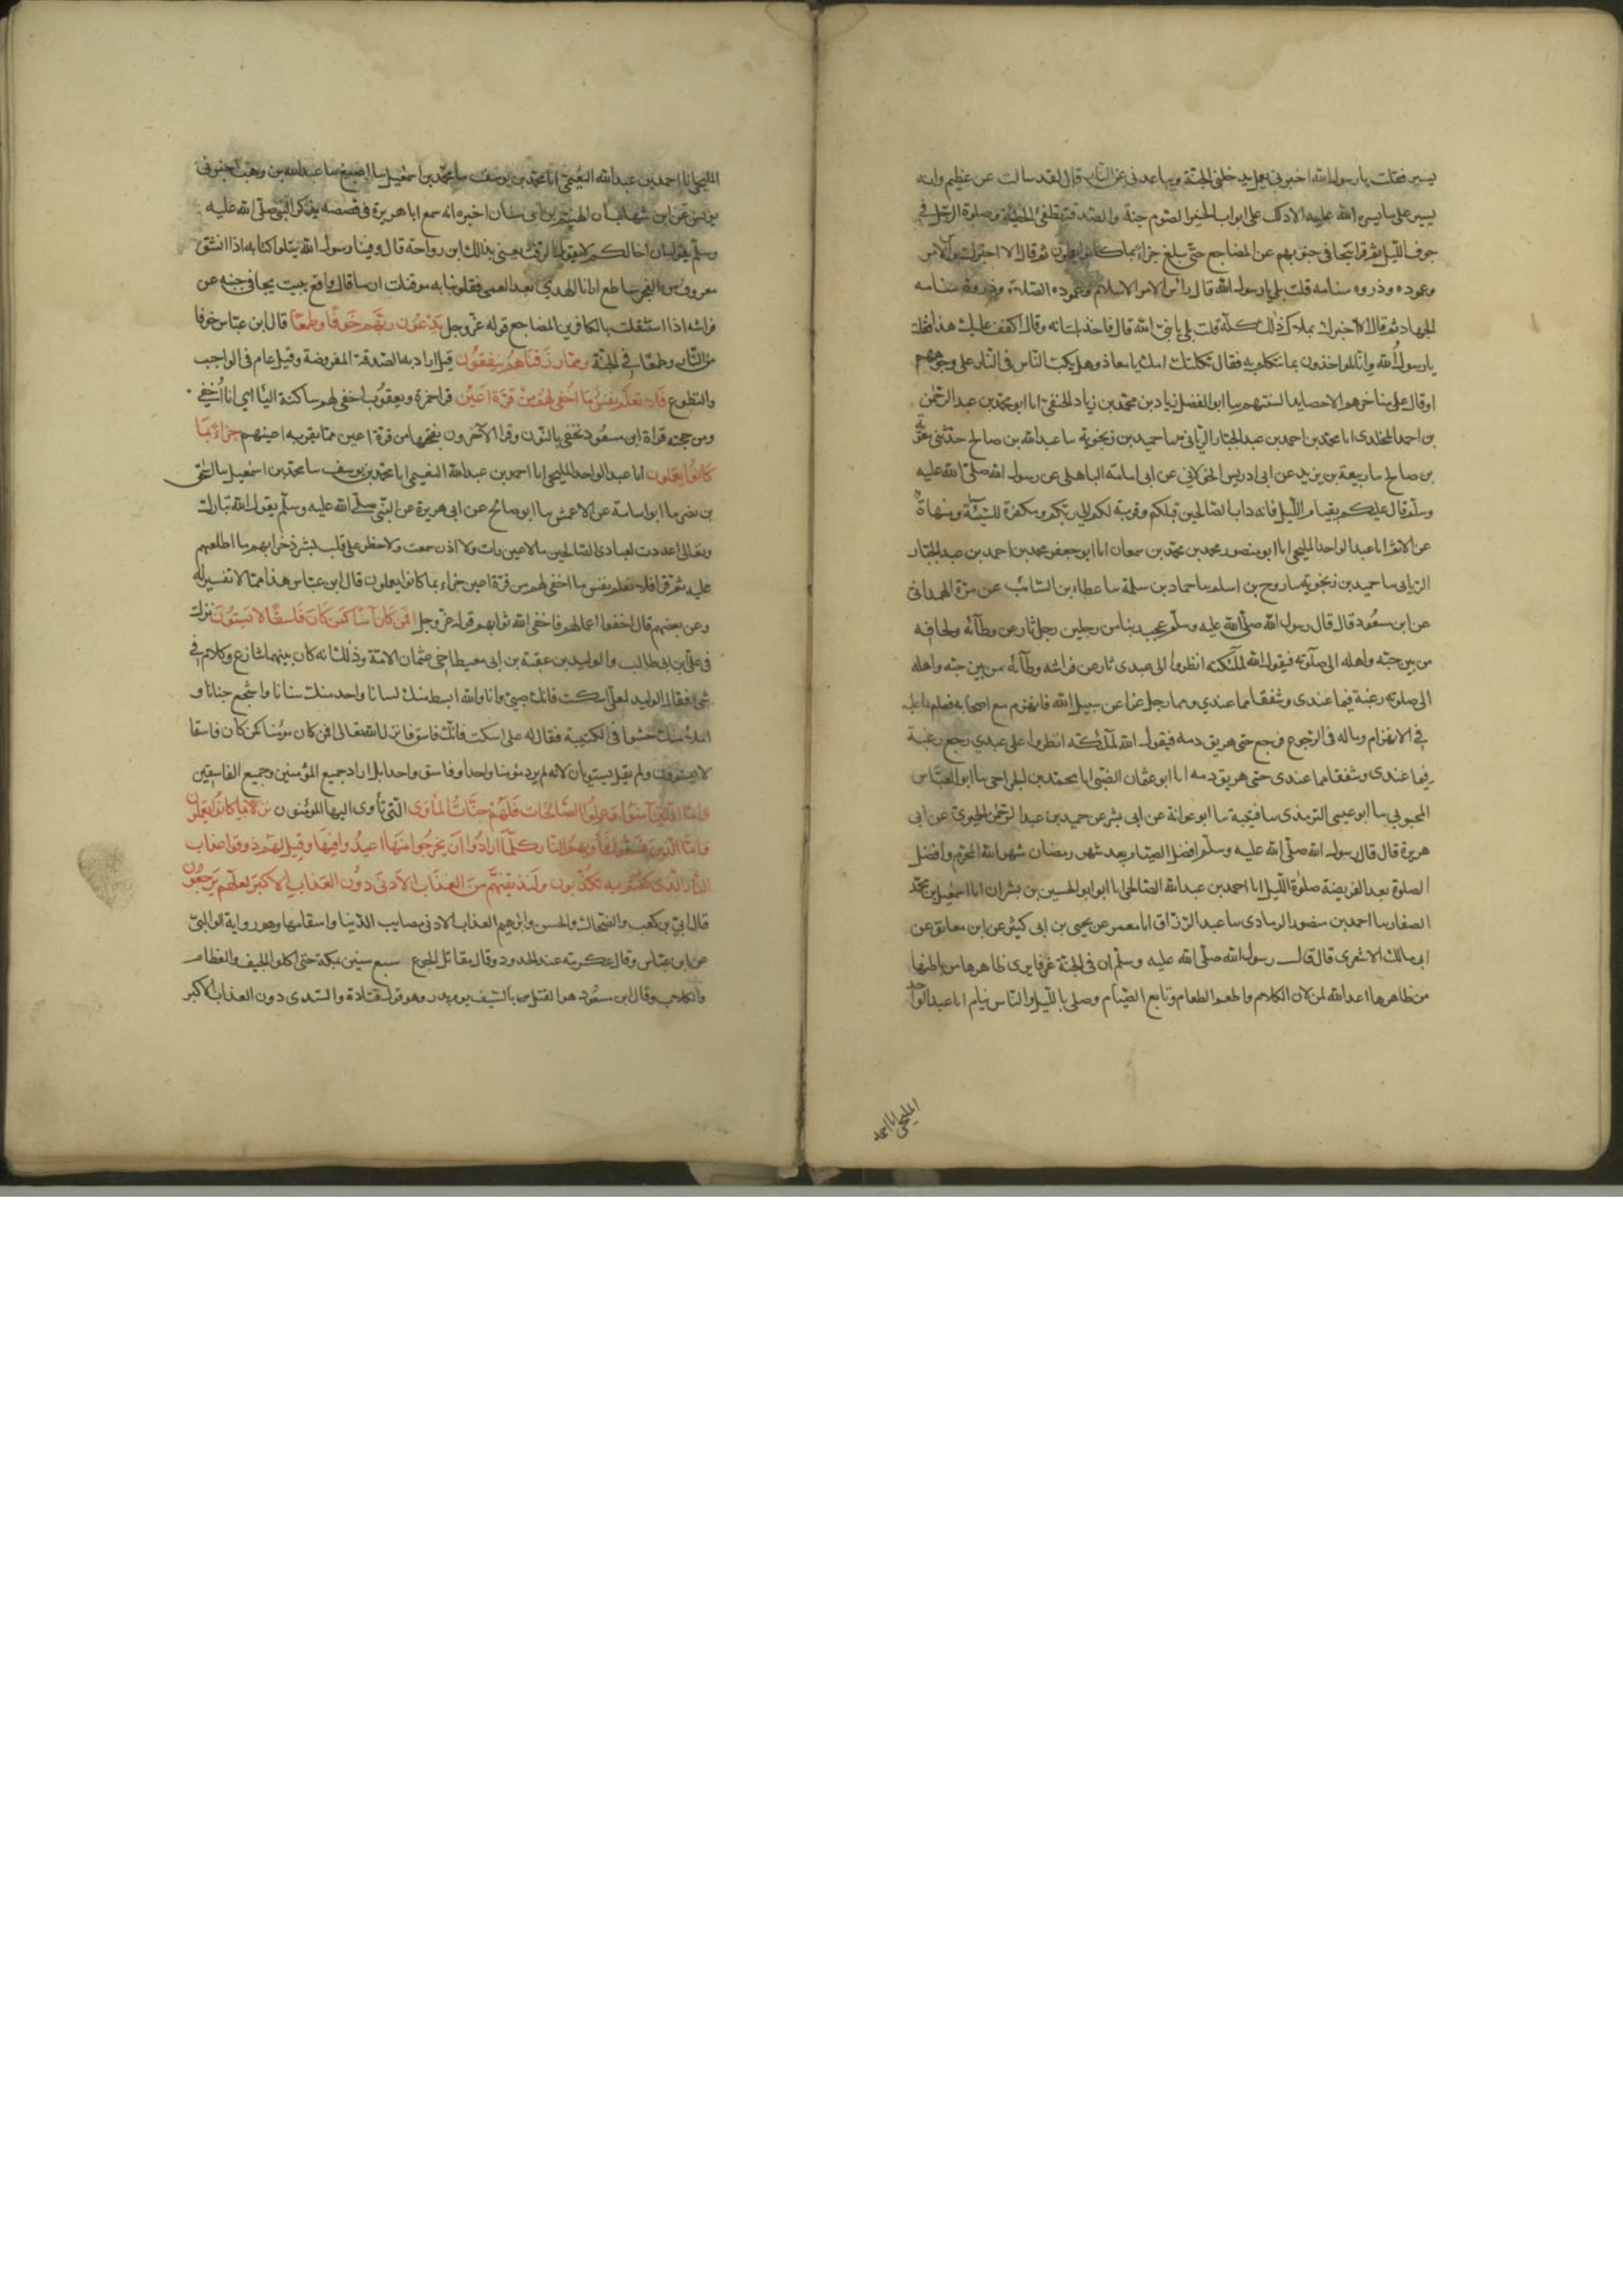 يسير فقلت يا رسول الله اخبرني بعمل يدخلني الجنة ويباعدني عن النار قال لقد سالت عن عظيم وانه
يسير على ما يسره الله عليه الا ادلك على ابواب الخير الصوم جنة والصدقة تطفئ الخطيئة وصلوة الرجل في
جوف الليل ثم قرا تتجافى جنوبهم عن المضاجع حتى بلغ جزاء بما كانوا يعملون ثم قال الا اخبرك براس الامر
وعموده وذروه سنامه قلت بلى يا رسول الله قال راس الامر الاسلام وعموده الصلوة وذروة سنامه
الجهاد ثم قال الا اخبرك بملاك ذلك كله قلت بلى يا نبي الله قال فاخذ بلسانه وقال اكفف عليك هذا فقلت
يا رسول الله وانا لمواخذون بما نتكلم به فقال ثكلتك امك يا معاذ وهل يكب الناس في النار على وجوههم
او قال على مناخرهم الا حصايد السنتهم سا ابو الفضل زياد بن محمد بن زياد الحنفي انا ابو محمد بن عبد الرحمن
بن احمد المخلدي انا محمد بن احمد بن عبد الجبار الرياني سا حميد بن زنجوية سا عبد الله بن صالح حدثني معوية
بن صالح سا ربيعة بن يزيد عن ابي ادريس الخولاني عن ابي امامة الباهلي عن رسول الله صلى الله عليه
وسلم قال عليكم بقيام الليل فانه داب الصالحين قبلكم وقربة لكم الى ربكم ومكفرة للسيئات ومنهاة
عن الاثم انا عبد الواحد المليحي انا ابو منصور محمد بن محمد بن سمعان انا ابو جعفر محمد بن احمد بن عبد الجبار
الرياني سا حميد بن زنجويه سا روح بن اسلم سا حماد بن سلمة سا عطاء بن السائب عن مرة الهمداني
عن ابن مسعود قال قال رسول الله صلى الله عليه وسلم عجب ربنا من رجلين رجل ثار عن وطائه ولحافه
من بين حبه واهله الى صلوته فيقول الله لملئكته انظروا الى عبدي ثار عن فراشه وطائه من بين حبه واهله
الى صلوته رغبة فيما عندي وشفقا مما عندي ورجل غزا في سبيل الله فانهزم مع اصحابه فعلم ما عليه
في الانهزام وما له في الرجوع فرجع حتى هريق دمه فيقول الله لملئكته انظروا الى عبدي رجع رغبة
فيما عندي وشفقا مما عندي حتى هريق دمه انا ابو عثمان الضبي انا ابو محمد الجراحي سا ابو العباس
المحبوبي سا ابو عيسى الترمذي سا قتيبة سا ابو عوانة عن ابي بشر عن حميد بن عبد الرحمن الحميري عن ابي
هريرة قال قال رسول الله صلى الله عليه وسلم افضل الصيام بعد شهر رمضان شهر الله المحرم وافضل
الصلوة بعد الفريضة صلوة الليل انا احمد بن عبد الله الصالحي انا ابو الحسين بن بشران انا اسمعيل بن محمد
الصفار سا احمد بن منصور الرمادي سا عبد الرزاق انا معمر عن يحيى بن ابي كثير عن ابن معانق عن
ابي مالك الاشعري قال قال رسول الله صلى الله عليه وسلم ان في الجنة غرفا يرى ظاهرها من باطنها
من ظاهرها اعد الله لمن الان الكلام واطعم الطعام وتابع الصيام وصلى بالليل والناس نيام انا عبد الواحد
المليحي انا احمد
المليحي انا احمد بن عبد الله النعيمي انا محمد بن يوسف سا محمد بن اسمعيل سا اصبغ سا عبد الله بن وهب اخبرني
يونس عن ابن شهاب ان الهيثم بن ابي سنان اخبره انه سمع ابا هريرة في قصصه يذكر النبي صلى الله عليه
وسلم يقول ان اخا لكم لا يقول الرفث يعني بذلك ابن رواحة قال وفينا رسول الله يتلو كتابه اذا انشق
معروف من الفجر ساطع ارانا الهدى بعد العمى فقلوبنا به موقنات ان ما قال واقع يبيت يجافي جنبه عن
فراشه اذا استثقلت بالكافرين المضاجع قوله عز وجل يدعون ربهم خوفا وطمعا قال ابن عباس خوفا
من النار وطمعا في الجنة ومما رزقناهم ينفقون قيل اراد به الصدقة المفروضة وقيل عام في الواجب
والتطوع فلا تعلم نفس ما اخفي لهم من قرة اعين قرا حمزة ويعقوب اخفي لهم ساكنة اليا اي انا اخفي
ومن حجته قراة ابن مسعود نخفي بالنون وقرا الآخرون بفتحها من قرة اعين مما تقر به اعينهم جزاء بما
كانوا يعملون انا عبد الواحد المليحي انا احمد بن عبد الله النعيمي انا محمد بن يوسف سا محمد بن اسمعيل سا اسحق
بن نصر سا ابو اسامة عن الاعمش سا ابو صالح عن ابي هريرة عن النبي صلى الله عليه وسلم يقول الله تبارك
وتعالى اعددت لعبادي الصالحين ما لا عين رات ولا اذن سمعت ولا خطر على قلب بشر ذخرا بهم ما اطلعهم
عليه ثم قرا فلا تعلم نفس ما اخفي لهم من قرة اعين جزاء بما كانوا يعملون قال ابن عباس هذا مما لا تفسير له
وعن بعضهم قال اخفوا اعمالهم فاخفى الله ثوابهم قوله عز وجل افمن كان مؤمنا كمن كان فاسقا لا يستوون نزلت
في علي بن ابي طالب والوليد بن عقبة بن ابي معيط اخي عثمان لامه وذلك انه كان بينهما تنازع وكلام في
شيء فقال الوليد لعلي اسكت فانك صبي وانا والله ابسط منك لسانا واحد منك سنانا واشجع جنانا و
املا منك حشوا في الكتيبة فقال له علي اسكت فانك فاسق فانزل الله تعالى افمن كان مؤمنا كمن كان فاسقا
لا يستوون ولم يقل يستويان لانه لم يرد مؤمنا واحدا وفاسق واحدا بل اراد جميع المؤمنين وجميع الفاسقين
واما الذين آمنوا وعملوا الصالحات فلهم جنات المأوى التي تأوى اليها المؤمنون نزلا بما كانوا يعملون
واما الذين فسقوا فمأويهم النار كلما ارادوا ان يخرجوا منها اعيدوا فيها وقيل لهم ذوقوا عذاب
النار الذي كنتم به تكذبون ولنذيقنهم من العذاب الادنى دون العذاب الاكبر لعلهم يرجعون
قال ابي بن كعب والضحاك والحسن وابرهيم العذاب الادنى مصايب الدنيا واسقامها وهو رواية الوالبي
عن ابن عباس وقال عكرمة عنه الحدود وقال مقاتل الجوع سبع سنين بمكة حتى اكلوا الجيف والعظام
والكلاب وقال ابن مسعود هو القتل بالسيف يوم بدر وهو قول قتادة والسدى دون العذاب الاكبر